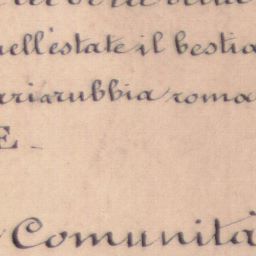 nell'estate il bestia
arriarubbia roma
E.
Comunità